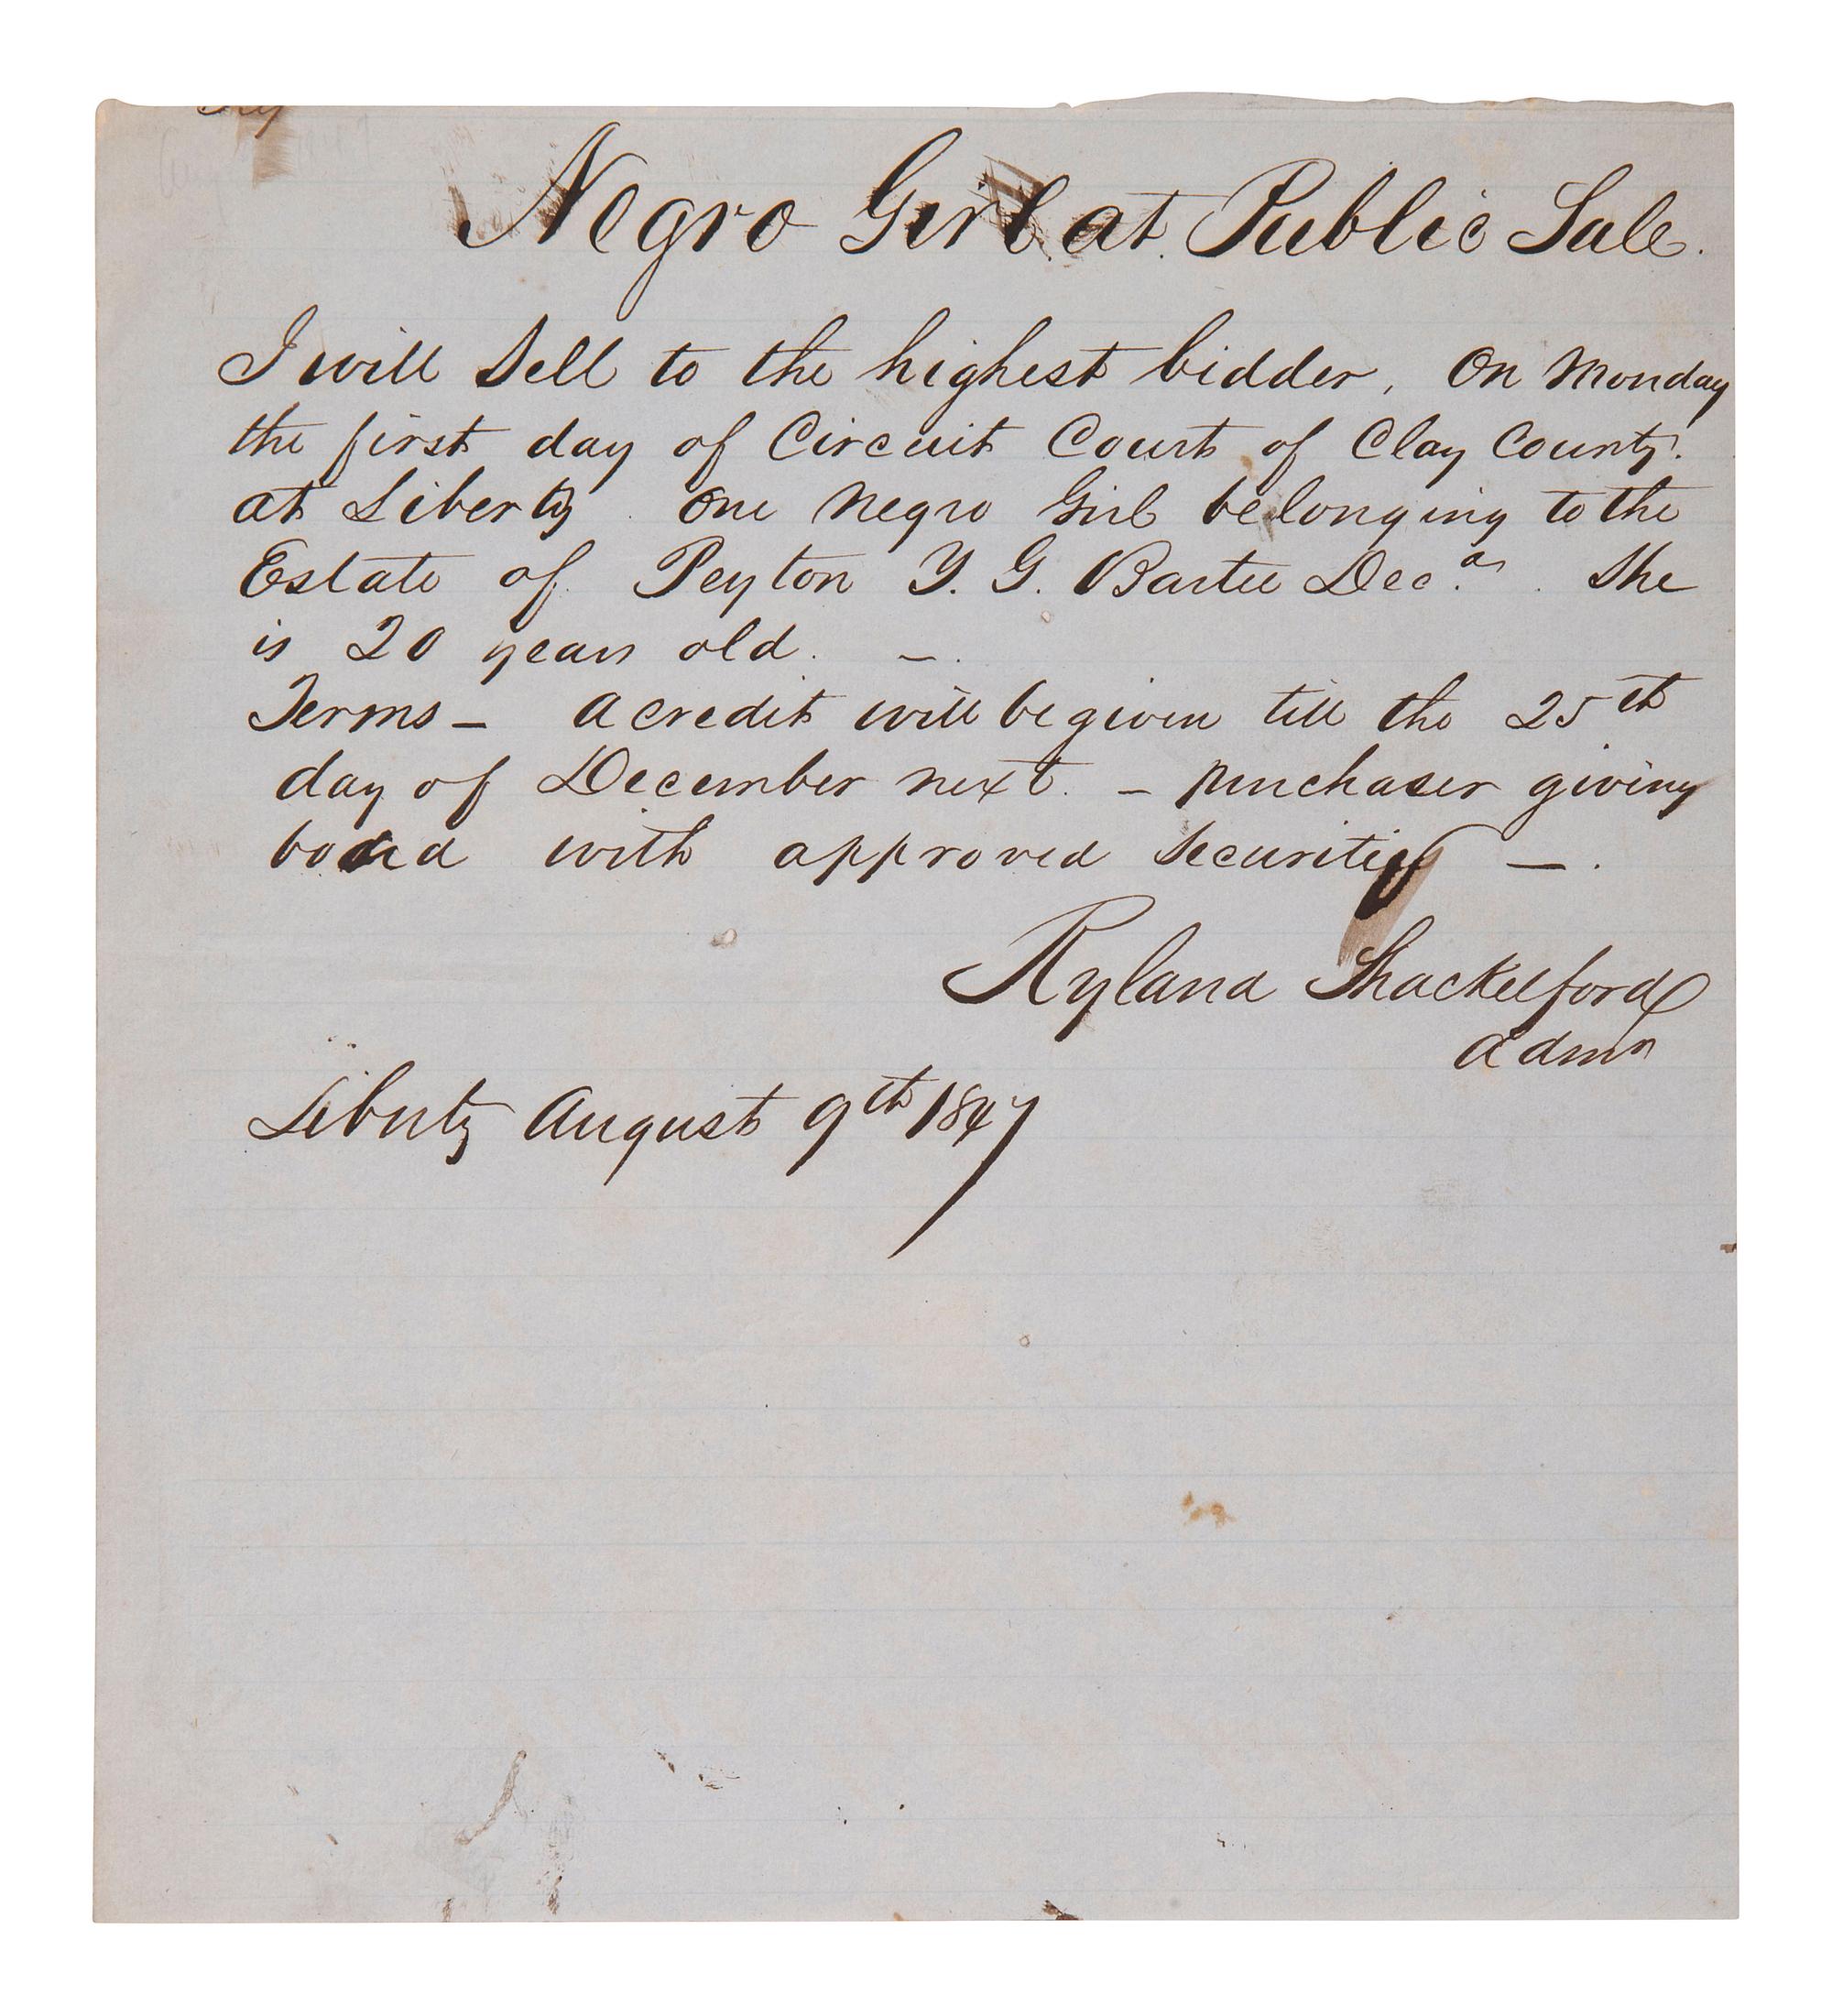 Negro Girl at Public Sale.
I will Sell to the highest bidder, On Monday
the first day of Circuit Court of Clay County.
at Liberty One Negro Girl belonging to the
Estate of Peyton Y. G. Bartee Decd. She
is 20 years old. —
Terms — A credit will be given till the 25th
day of December next. — purchaser giving
bond with approved Securities —.
Ryland Shackelford
Admr
Liberty August 9th 1847